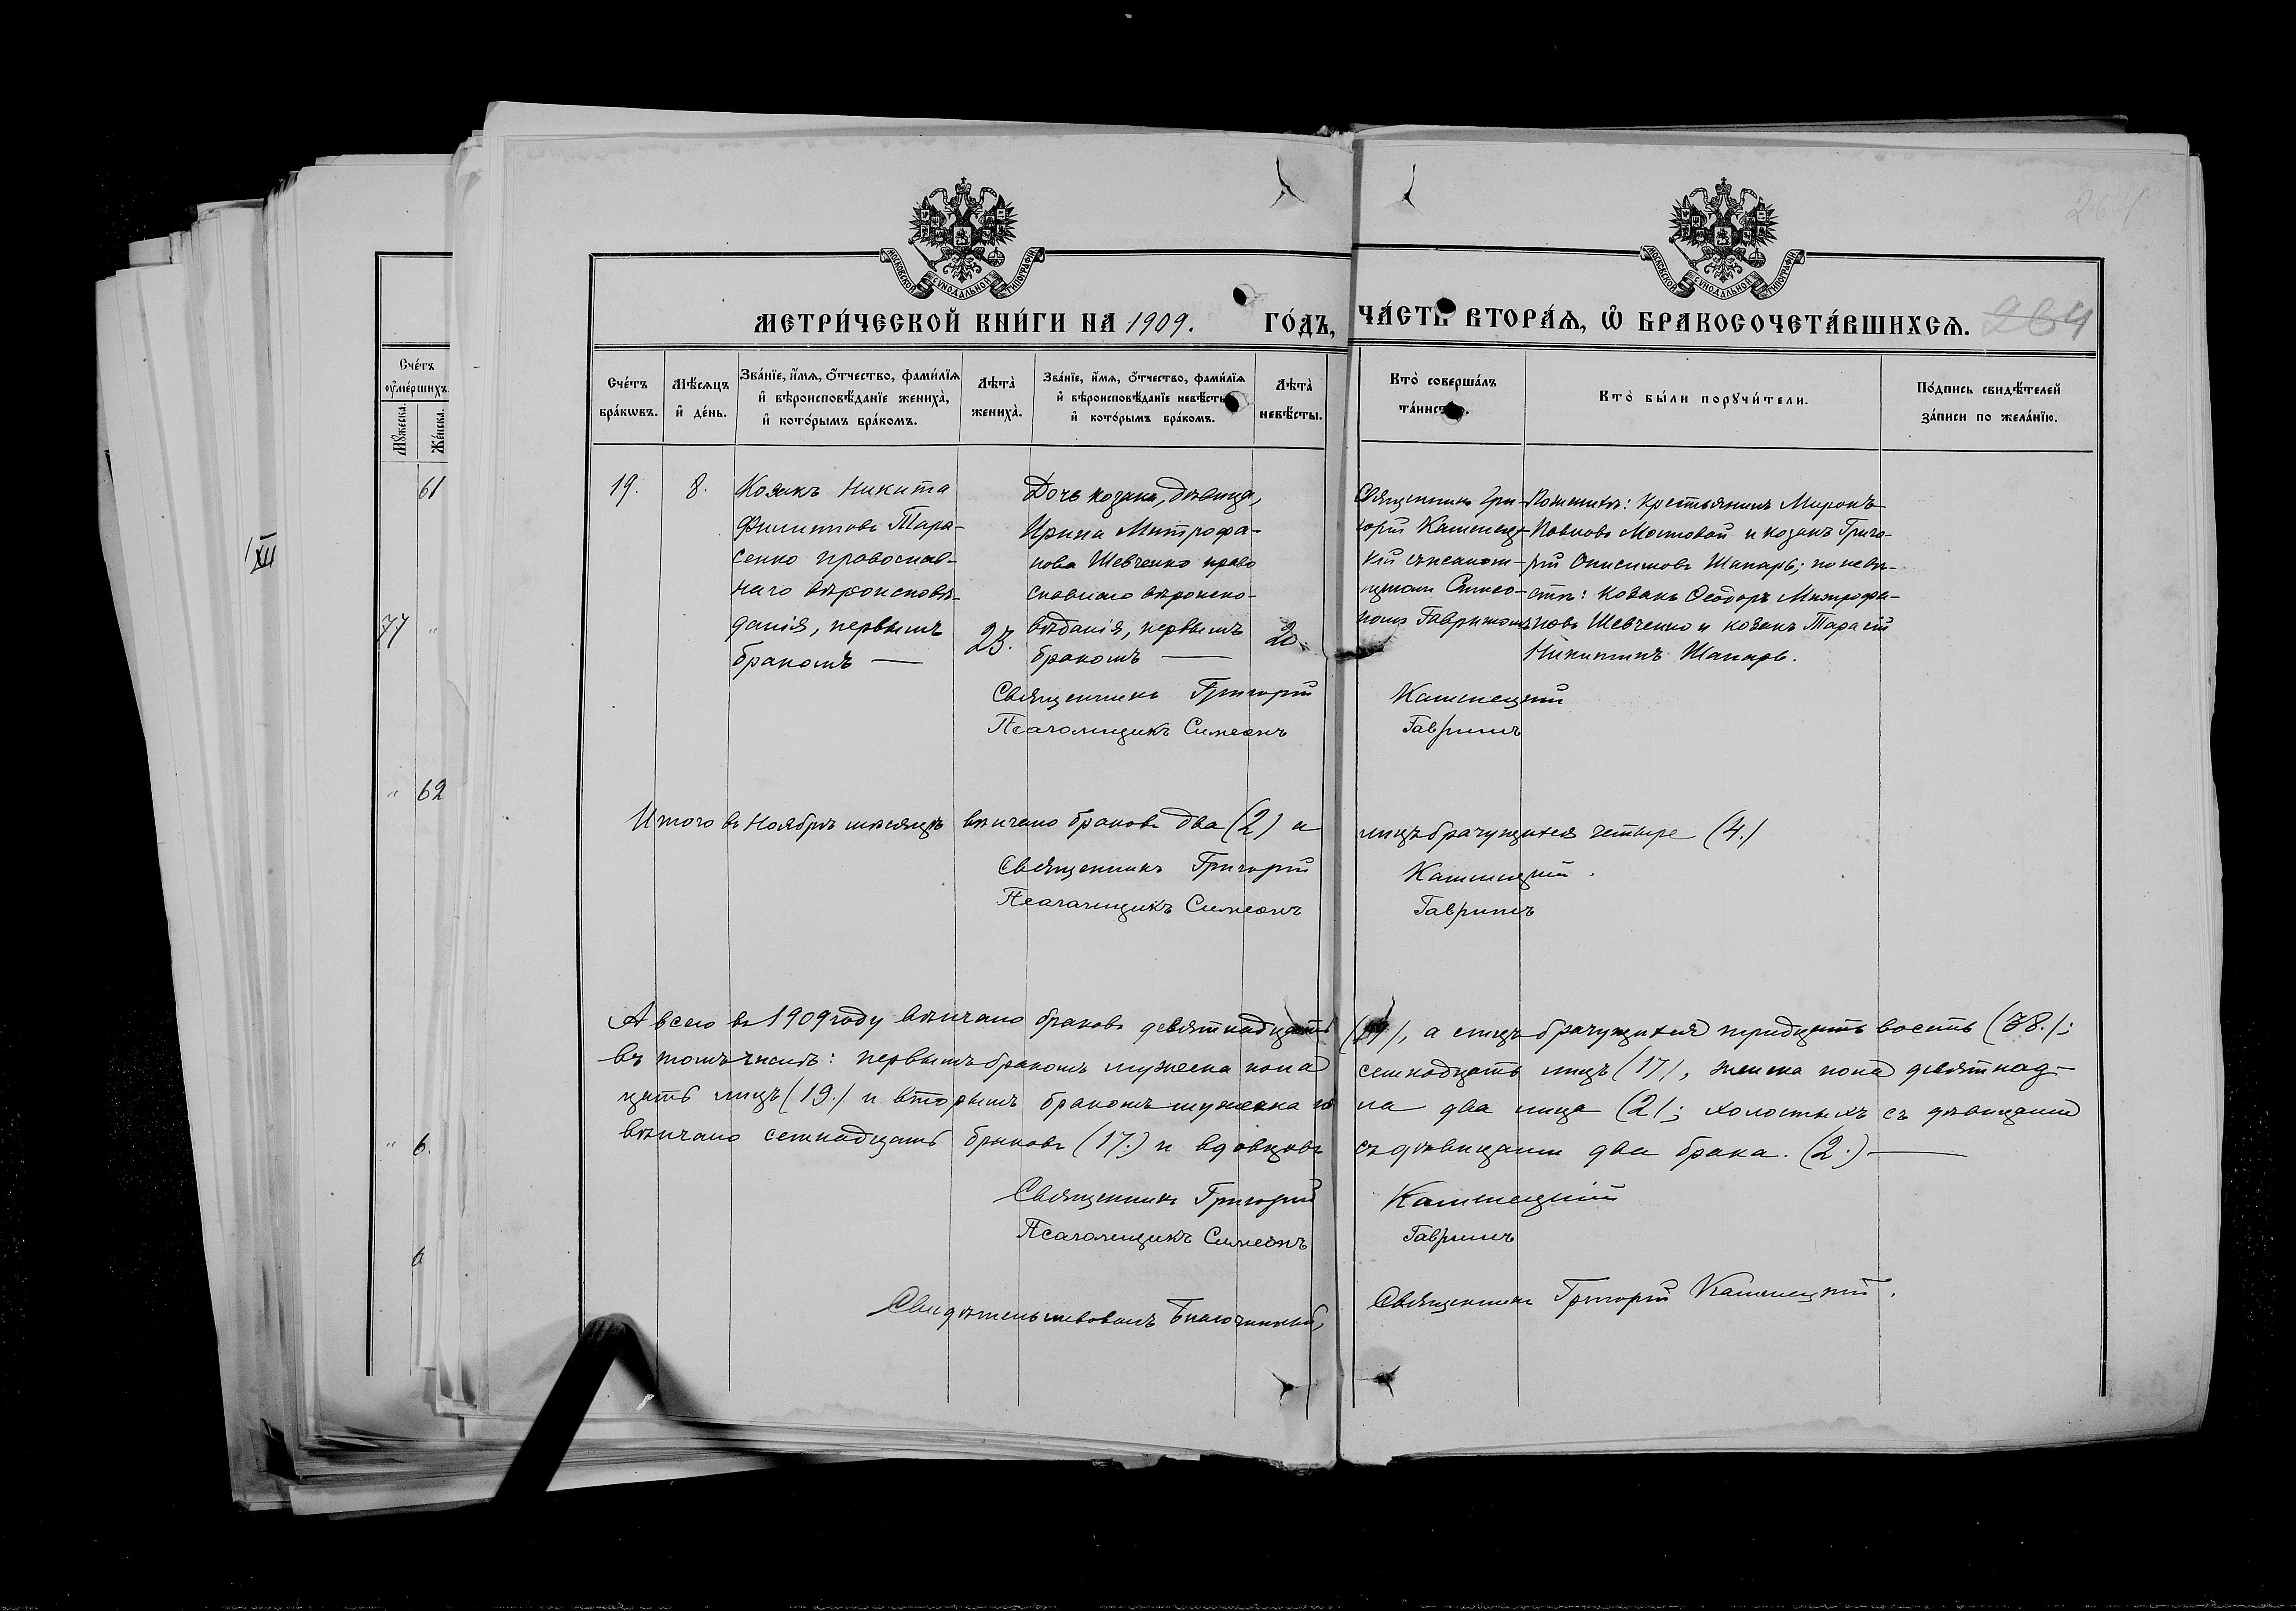 Счéтъ
ѹ҆мéршихъ.
Мꙋ́жеска.
Жéнска.
61
77 "
" 62
" 6
6
1 XII
264
МОСКОВСКОЙ СѴНОДАЛЬНОЙ ТИПОГРАФІИ
МОСКОВСКОЙ СѴНОДАЛЬНОЙ ТИПОГРАФІИ
МЕТРИ́ЧЕСКОЙ КНИ́ГИ НА 1909. ГО́ДЪ,
ЧА́СТЬ ВТОРА́Ѧ, Ѽ БРАКОСОЧЕТА́ВШИХСѦ. 264
Счéтъ бра́кѡвъ.
Мѣ́сѧцъ и҆ дéнь.
Зва́нїе, и҆́мѧ, ѻ҆́тчество, фами́лїѧ и҆ вѣроисповѣ́данїе жениха̀, и҆ кото́рымъ бра́комъ.
Лѣ́та̀ жениха̀.
Зва́нїе, и҆́мѧ, ѻ҆́тчество, фами́лїѧ и҆ вѣроисповѣ́данїе невѣ́сты и҆ кото́рымъ бра́комъ.
Лѣ́та̀ невѣ́сты.
Кто̀ соверша́лъ
та́инство.
Кто̀ бы́ли порꙋчи́тели.
По́дпись свидѣ́телей
за́писи по жела́нїю.
19.
8.
Козакъ Никита
Филиповъ Тара-
сенко православ-
наго вѣроисповѣ-
данія, первымъ
бракомъ —
23.
Дочь козака, дѣвица,
Ирина Митрофа-
нова Шевченко право
славнаго вѣроиспо-
вѣданія, первымъ
бракомъ —
20.
Священникъ Гри-
горій Каменец-
кій съ псалом-
щикомъ Симео-
номъ Гавришомъ
По женихѣ: крестьянинъ Миронъ
Павловъ Мостовой и козакъ Григо-
рій Онисимовъ Шапарь; по невѣ-
стѣ: козакъ Ѳеодоръ Митрофа-
новъ Шевченко и козакъ Тарасій
Никитинъ Шапарь.
Священникъ Григорій Каменецкій
Псаломщикъ Симеонъ Гавришъ
Итого въ Ноябрѣ мѣсяцѣ вѣнчано браковъ два (2) и лицъ брачущихся четыре (4.)
Священникъ Григорій Каменецкій.
Псаломщикъ Симеонъ Гавришъ
А всего въ 1909 году вѣнчано браковъ девятнадцать (19), а лицъ брачущихся тридцать восемь (38.);
въ томъ числѣ: первымъ бракомъ мужеска пола семнадцать лицъ (17), женска пола девятнад-
цать лицъ (19.) и вторымъ бракомъ мужеска по ла два лица (2); холостыхъ съ дѣвицами
вѣнчано семнадцать браковъ (17.) и вдовцовъ съ дѣвицами два брака. (2.) —
Священникъ Григорій Каменецкій
Псаломщикъ Симеонъ Гавришъ
Свидѣтельствовалъ Благочинный, Священникъ Григорій Каменецкій.